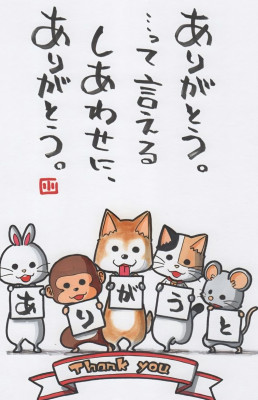 ありがとう。
…って言える
しあわせに、
ありがとう。
あ り が う と
Thank you